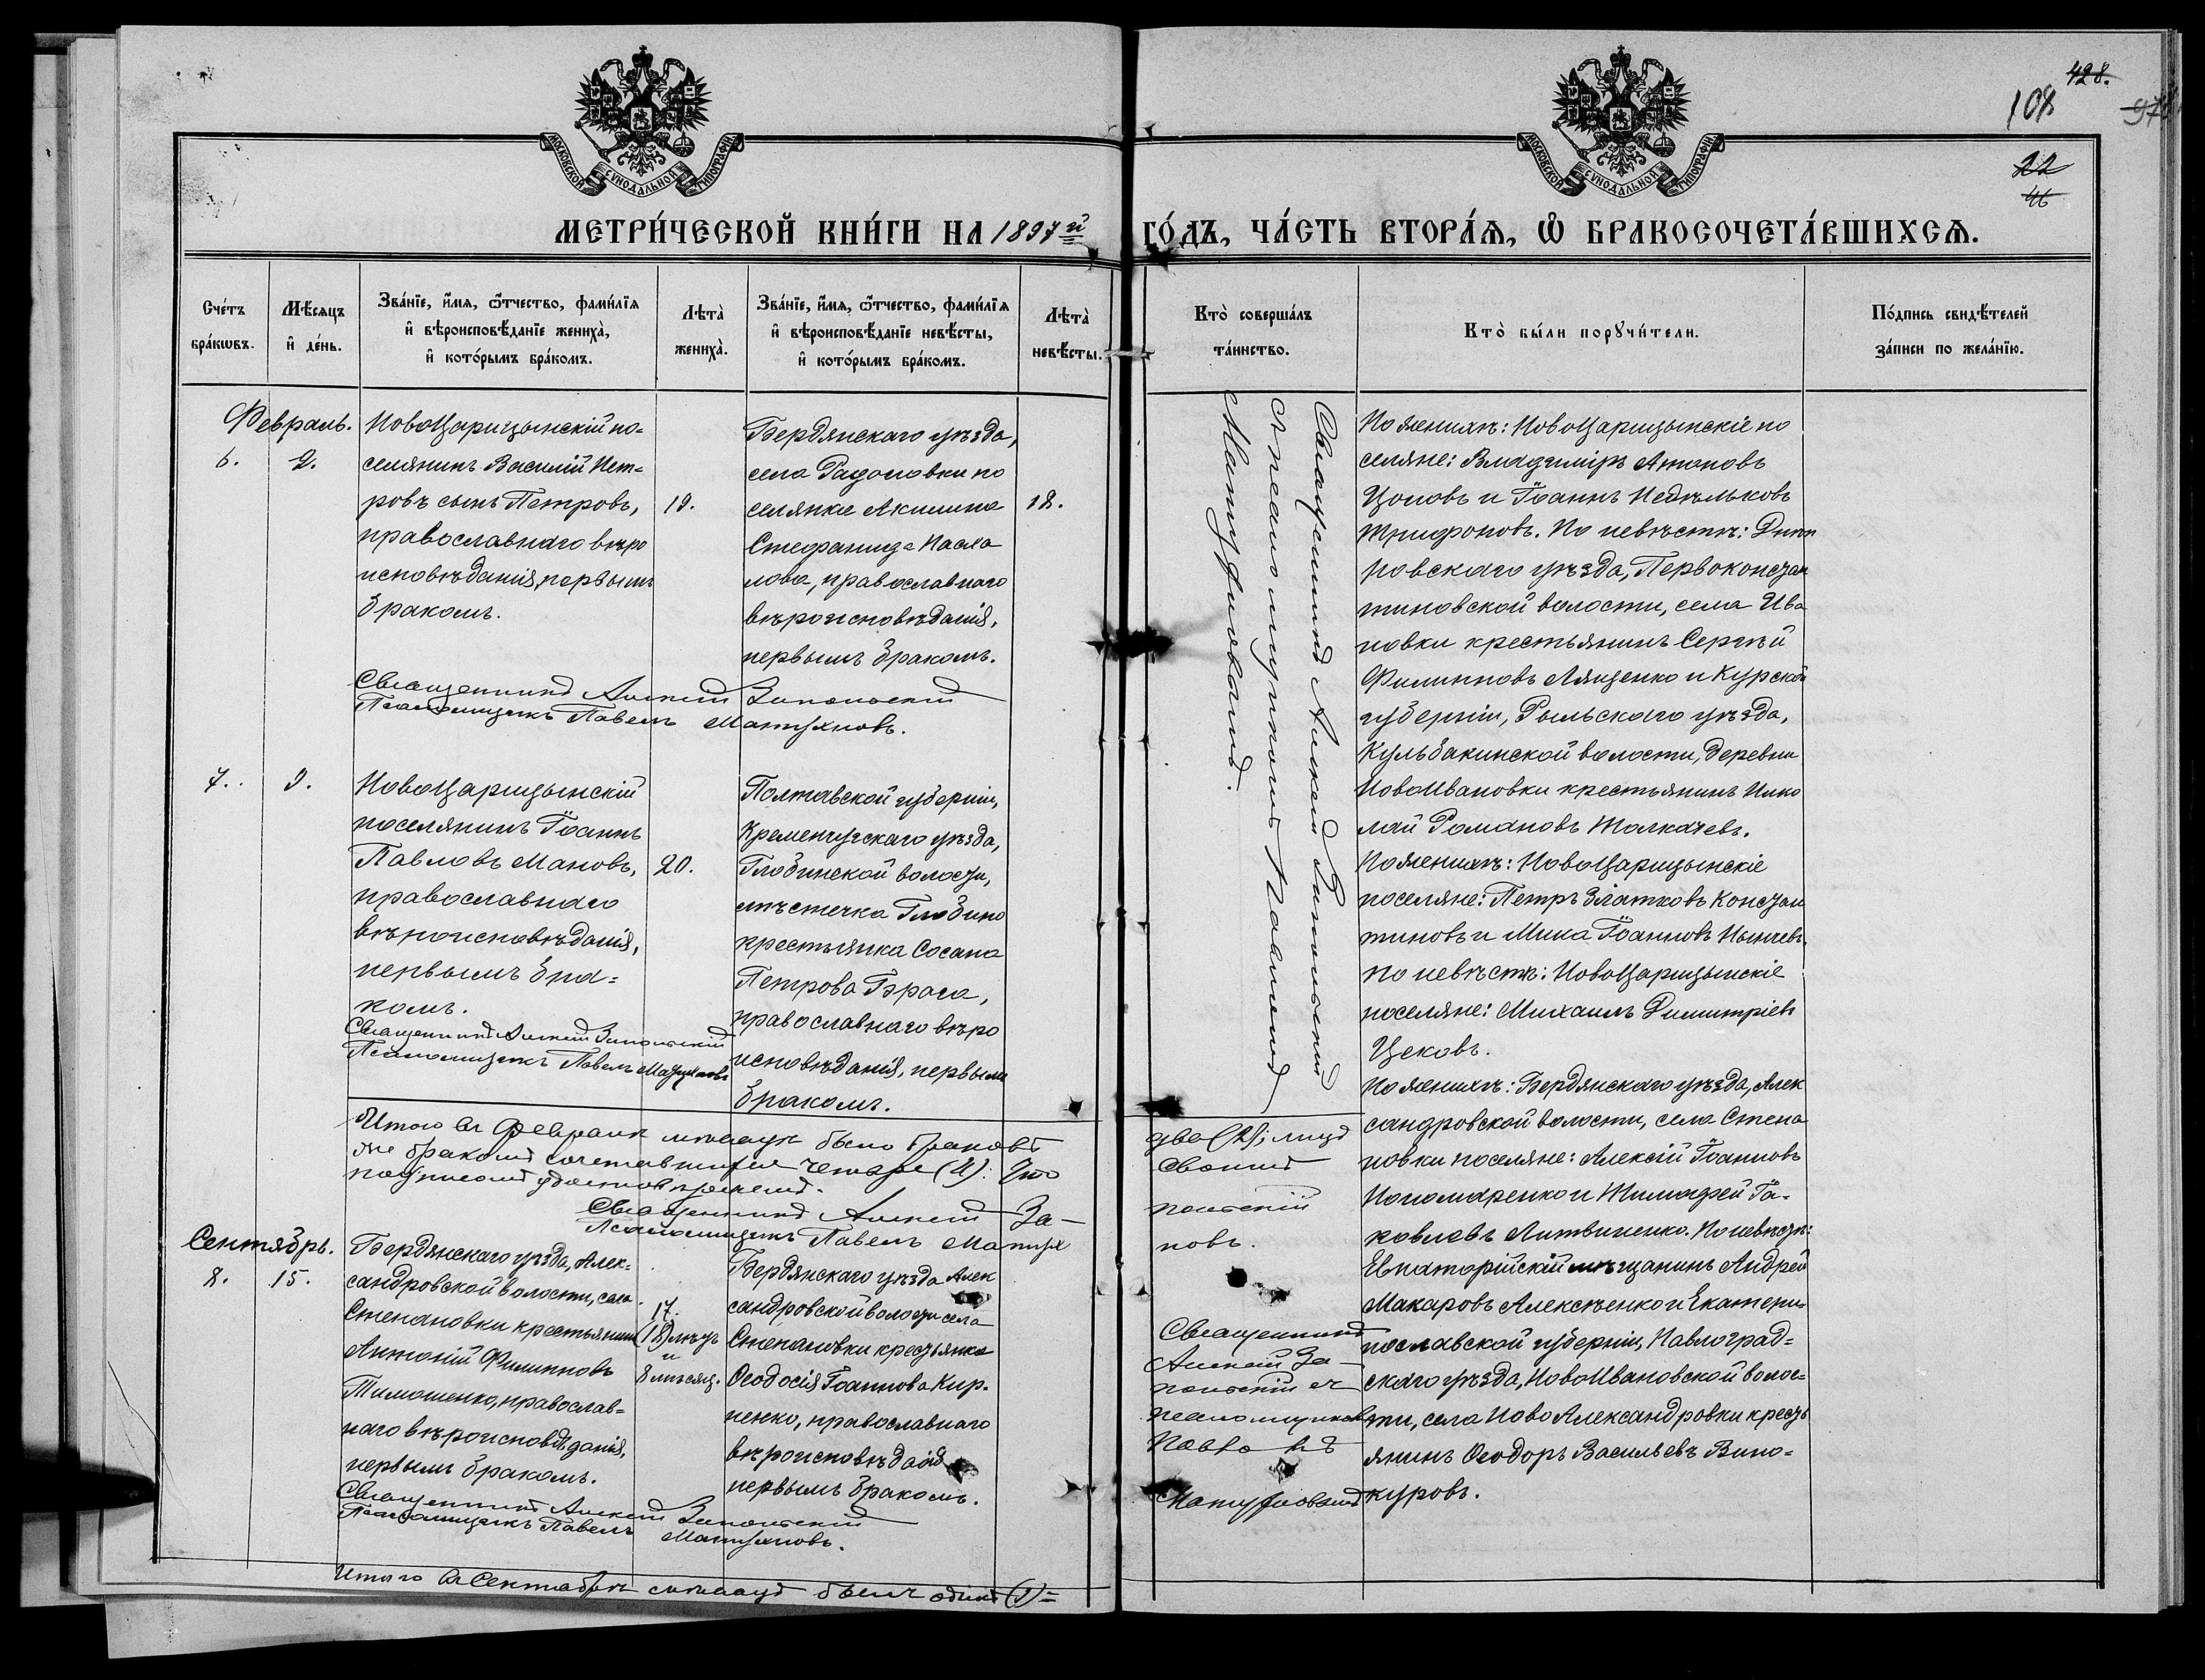 МОСКОВСКОЙ СѴНОДАЛЬНОЙ ТИПОГРАФІИ
МОСКОВСКОЙ СѴНОДАЛЬНОЙ ТИПОГРАФІИ
428.
108
22
46
МЕТРИ́ЧЕСКОЙ КНИ́ГИ НА 1897й ГО́ДЪ, ЧА́СТЬ ВТОРА́Ѧ, Ѡ҆ БРАКОСОЧЕТА́ВШИХСѦ.
Сче́тъ
бра́кѡвъ.
Мѣ́сяцъ
и҆ де́нь.
Зва́нїе, и҆́мѧ, ѻ҆́тчество, фами́лїѧ
и҆ вѣроисповѣ́данїе жениха̀,
и҆ кото́рымъ бра́комъ.
Лѣта̀
жениха̀.
Зва́нїе, и҆́мѧ, ѻ҆́тчество, фами́лїѧ
и҆ вѣроисповѣ́данїе невѣ́сты,
и҆ кото́рымъ бра́комъ.
Лѣта̀
невѣ́сты.
Кто̀ соверша́лъ
та́инство.
Кто̀ бы́ли порꙋчи́тели.
По́дпись свидѣ́телей
за́писи по жела́нїю.
Февраль.
6.
9.
НовоЦарицынскій по=
селянинъ Василій Пет=
ровъ сынъ Петровъ,
православнаго вѣро
исповѣданія, первымъ
бракомъ.
19.
Бердянскаго уѣзда,
села Радоловки по
селянка Акилина
Стефанида Насла
лова, православнаго
вѣроисповѣданія,
первымъ бракомъ.
18.
Священникъ Алексій Запольскій
Псаломщикъ Павелъ Матухновъ.
Священникъ Алексій Запольскій
съ псаломщикомъ Павломъ
Матухновымъ.
По женихѣ: НовоЦарицынскіе по
селяне: Владиміръ Антоновъ
Цоновъ и Іоаннъ Недѣльковъ
Трифоновъ. По невѣстѣ: Днѣп
ровскаго уѣзда, Первоконстан
тиновской волости, села Ива
новки крестьянинъ Сергѣй
Филипповъ Лященко и Курской
губерніи, Рыльскаго уѣзда,
Кульбакинской волости, деревни
НовоИвановки крестьянинъ Нико
лай Романовъ Толкачевъ.
7.
9.
НовоЦарицынскій
поселянинъ Іоаннъ
Павловъ Мановъ,
православнаго
вѣроисповѣданія,
первымъ бра=
комъ.
20.
Полтавской губерніи,
Кременчугскаго уѣзда,
Глобинской волости,
мѣстечка Глобино
крестьянка Сосана
Петрова Брага,
православнаго вѣро
исповѣданія, первымъ
бракомъ.
Священникъ Алексій Запольскій
Псаломщикъ Павелъ Матухновъ
По женихѣ: НовоЦарицынскіе
поселяне: Петръ Златковъ Констан
тиновъ и Мина Іоанновъ Нынчевъ.
По невѣстѣ: НовоЦарицынскіе
поселяне: Михаилъ Димитріевъ
Цековъ.
Итого въ Февралѣ мѣсяцѣ было браковъ два (2); лицъ
же бракомъ сочетавшихся четыре (4). Что своимъ
подписомъ удостовѣряемъ.
Священникъ Алексій Запольскій
Псаломщикъ Павелъ Матухновъ.
Сентябрь.
8.
15.
Бердянскаго уѣзда, Алек=
сандровской волости, села
Степановки крестьянинъ
Антоній Филипповъ
Тимошенко, православ=
наго вѣроисповѣданія,
первымъ бракомъ.
17.
(18) лѣтъ
и
8 мѣсяц.
Бердянскаго уѣзда Алек
сандровской волости села
Степановки крестьянка
Ѳеодосія Іоаннова Кир=
ненко, православнаго
вѣроисповѣданія
первымъ бракомъ.
Священникъ Алексій Запольскій
Псаломщикъ Павелъ Матухновъ.
Священникъ
Алексій За=
польскій съ
псаломщикомъ
Павломъ
Матухновымъ
По женихѣ: Бердянскаго уѣзда, Алек
сандровской волости, села Степа
новки поселяне: Алексій Іоанновъ
Пономаренко и Тимофей Іа=
ковлевъ Литвиненко. По невѣстѣ:
Евпаторійскій мѣщанинъ Андрей
Макаровъ Алексѣенко и Екатери=
нославской губерніи, Павлоград=
скаго уѣзда, НовоИвановской волос=
ти, села НовоАлександровки кресть
янинъ Ѳеодоръ Васильевъ Вино=
куровъ.
Итого въ Сентябрѣ мѣсяцѣ былъ одинъ (1)=